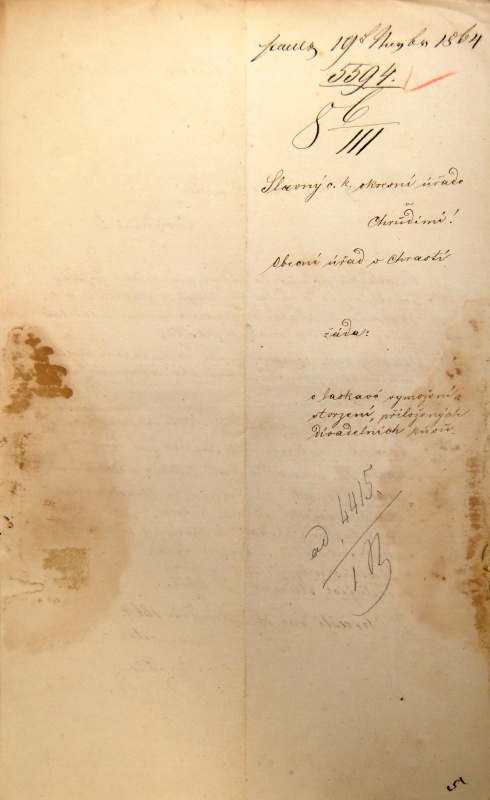 19 1864
5594.
8 6/III
Slavný c. k. okresní úřade
v
Chrudimi!
Obecní úřad v Chrasti
žádá:
o laskavé vymožení
stvrzení, přiložených
divadelních kusů.
ad 4415.